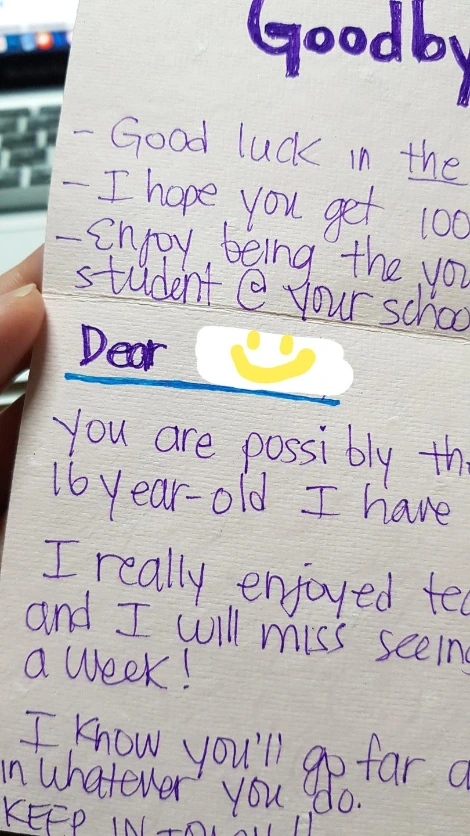 Goodby
- Good luck in the
- I hope you get 100
- Enjoy being the you
student @ your schoo
Dear
You are possibly th
16 year-old I have
I really enjoyed tea
and I will miss seeing
a week!
I know you'll go far a
in whatever you do.
KEEP IN TOUCH!!